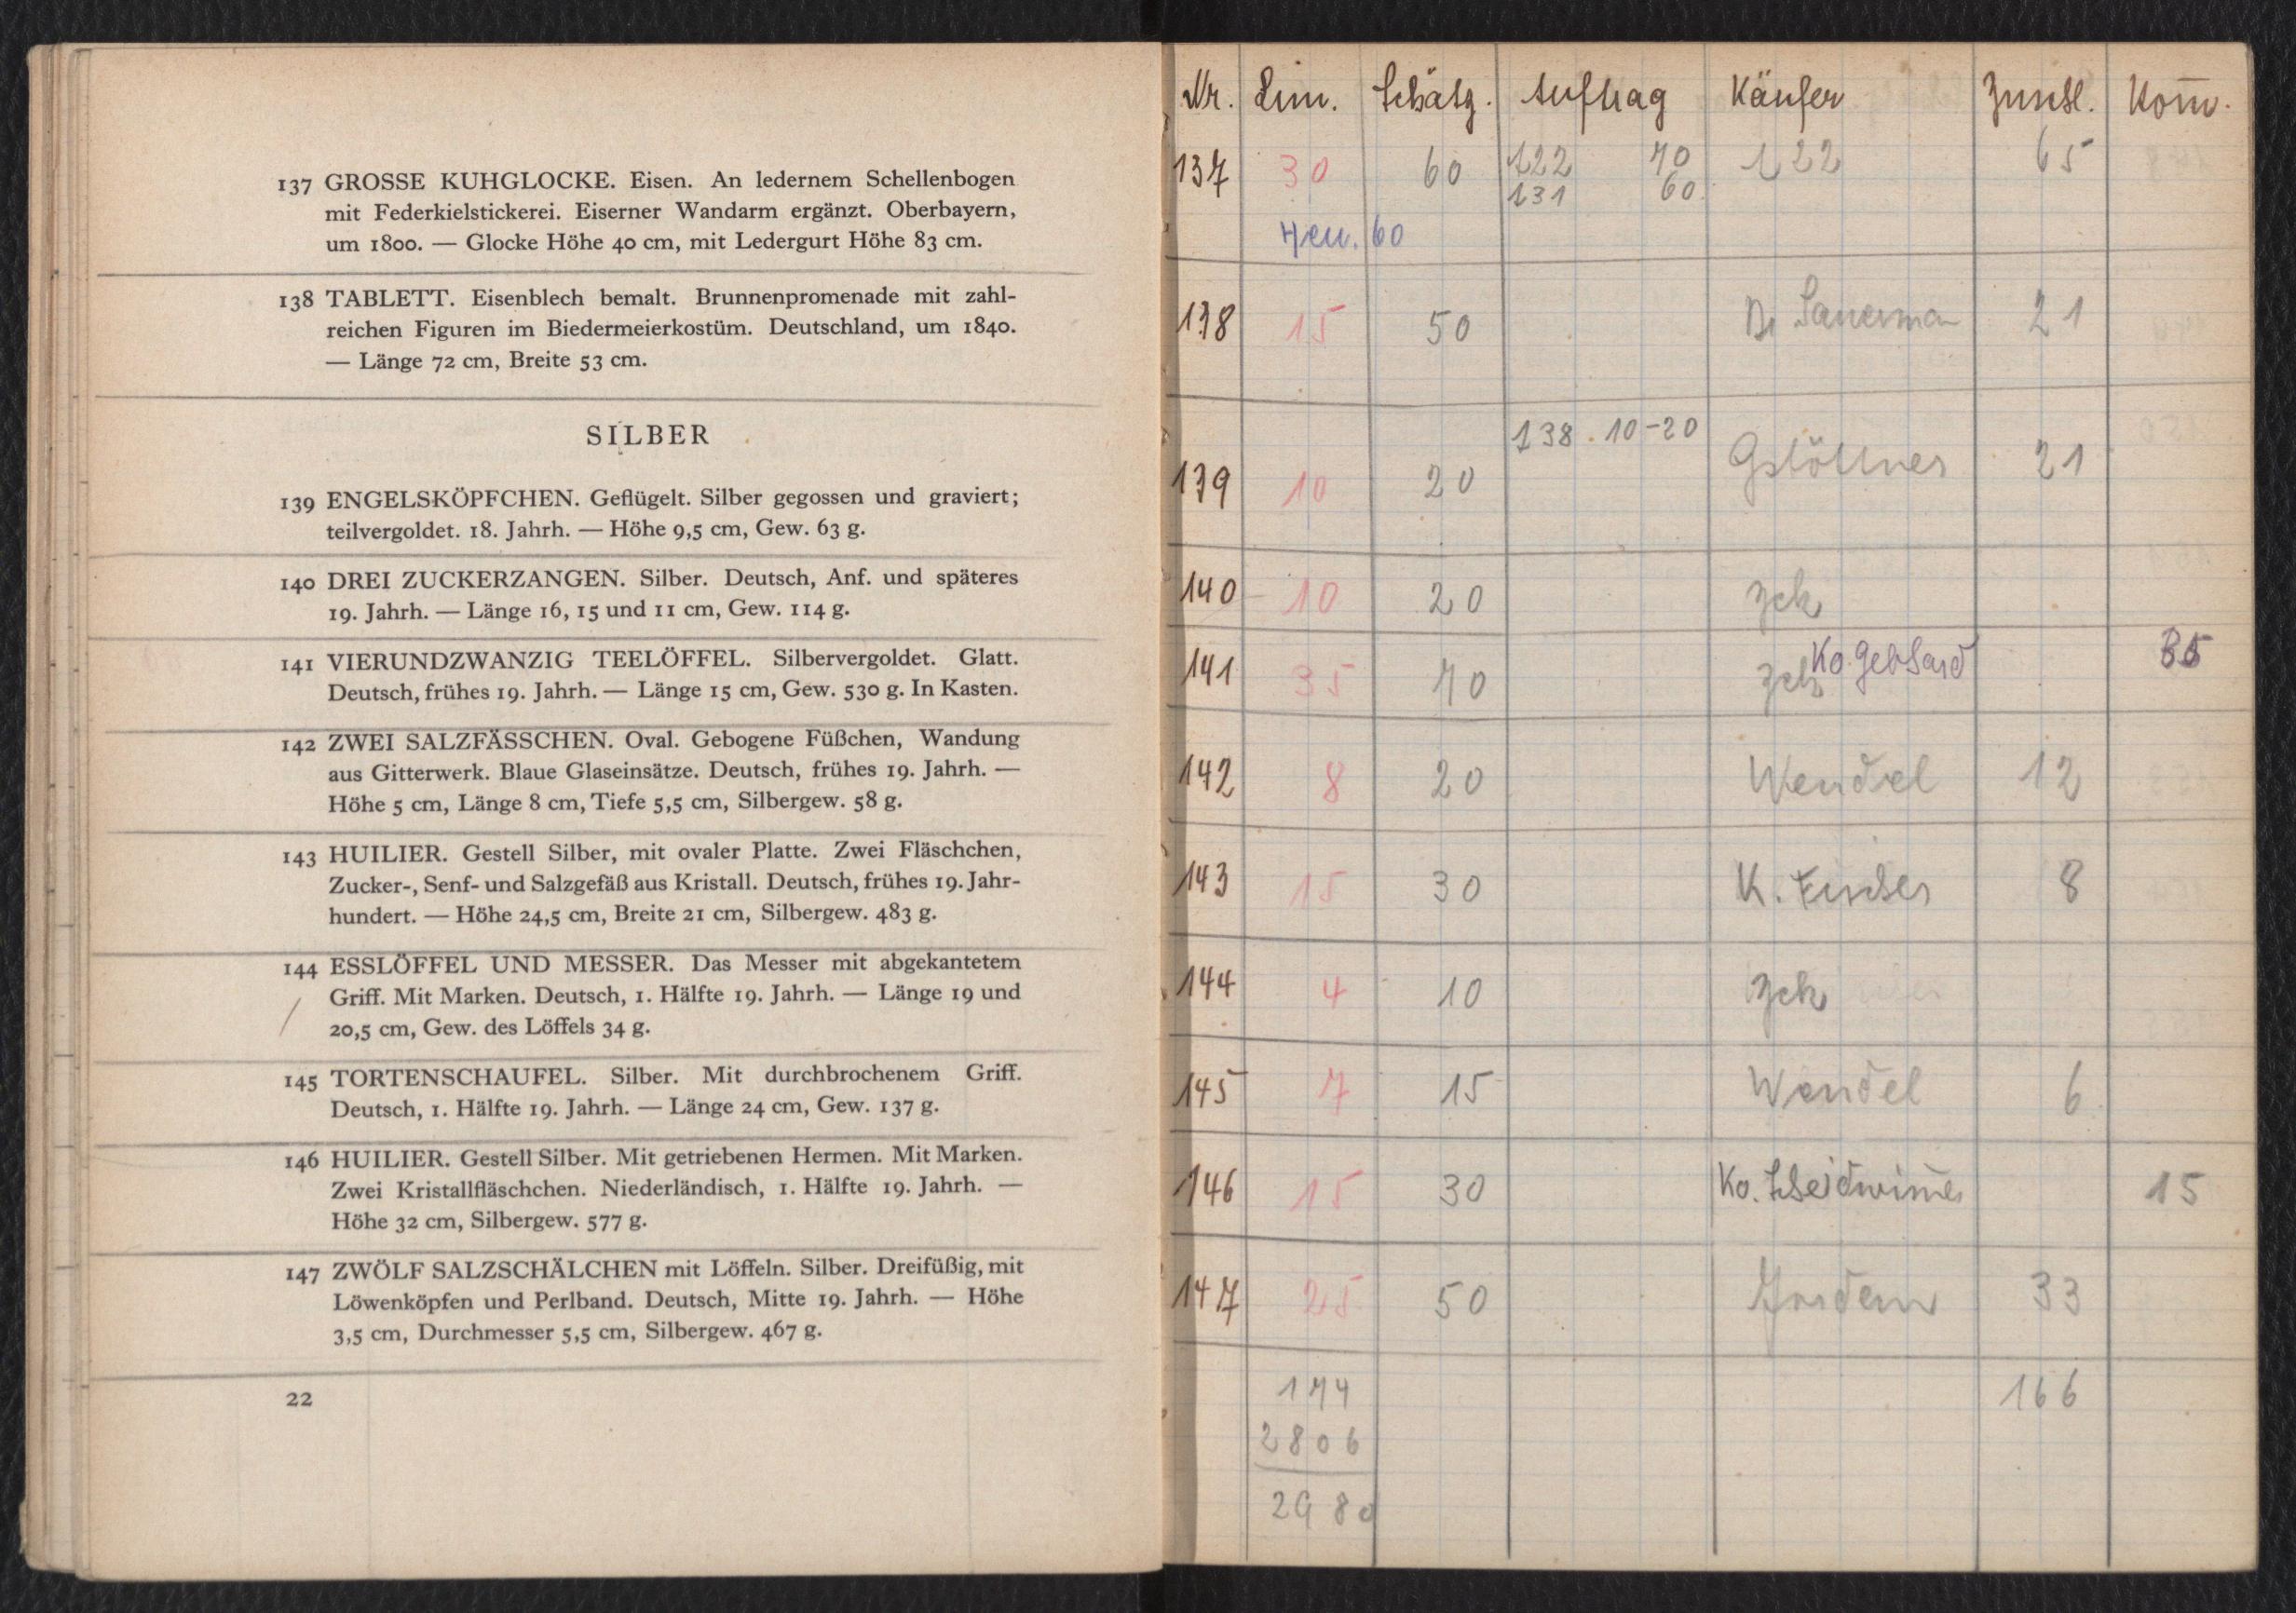 137 GROSSE KUHGLOCKE. Eisen. An ledernem Schellenbogen
mit Federkielstickerei. Eiserner Wandarm ergänzt. Oberbayern,
um 1800. — Glocke Höhe 40 cm, mit Ledergurt Höhe 83 cm.
138 TABLETT. Eisenblech bemalt. Brunnenpromenade mit zahl-
reichen Figuren im Biedermeierkostüm. Deutschland, um 1840.
— Länge 72 cm, Breite 53 cm.
SILBER
139 ENGELSKÖPFCHEN. Geflügelt. Silber gegossen und graviert;
teilvergoldet. 18. Jahrh. — Höhe 9,5 cm, Gew. 63 g.
140 DREI ZUCKERZANGEN. Silber. Deutsch, Anf. und späteres
19. Jahrh. — Länge 16, 15 und 11 cm, Gew. 114 g.
141 VIERUNDZWANZIG TEELÖFFEL. Silbervergoldet. Glatt.
Deutsch, frühes 19. Jahrh. — Länge 15 cm, Gew. 530 g. In Kasten.
142 ZWEI SALZFÄSSCHEN. Oval. Gebogene Füßchen, Wandung
aus Gitterwerk. Blaue Glaseinsätze. Deutsch, frühes 19. Jahrh. —
Höhe 5 cm, Länge 8 cm, Tiefe 5,5 cm, Silbergew. 58 g.
143 HUILIER. Gestell Silber, mit ovaler Platte. Zwei Fläschchen,
Zucker-, Senf- und Salzgefäß aus Kristall. Deutsch, frühes 19. Jahr-
hundert. — Höhe 24,5 cm, Breite 21 cm, Silbergew. 483 g.
144 ESSLÖFFEL UND MESSER. Das Messer mit abgekantetem
Griff. Mit Marken. Deutsch, 1. Hälfte 19. Jahrh. — Länge 19 und
20,5 cm, Gew. des Löffels 34 g.
145 TORTENSCHAUFEL. Silber. Mit durchbrochenem Griff.
Deutsch, 1. Hälfte 19. Jahrh. — Länge 24 cm, Gew. 137 g.
146 HUILIER. Gestell Silber. Mit getriebenen Hermen. Mit Marken.
Zwei Kristallfläschchen. Niederländisch, 1. Hälfte 19. Jahrh. —
Höhe 32 cm, Silbergew. 577 g.
147 ZWÖLF SALZSCHÄLCHEN mit Löffeln. Silber. Dreifüßig, mit
Löwenköpfen und Perlband. Deutsch, Mitte 19. Jahrh. — Höhe
3,5 cm, Durchmesser 5,5 cm, Silbergew. 467 g.
22
Nr. Lim. Schätz. Auftrag Käufer Zuschl. Kom̄.
137 30 60 122 70 122 65
131 60
60
138 15 50 21
138 . 10-20
139 10 20 Gstöttner 21
140 10 20 zck
141 35 70 zck Ko. Gebhard 35
142 8 20 Wendel 12
143 15 30 K. Fischer 8
144 4 10 zck
145 7 15 Wendel 6
146 15 30 Ko. Scheidwimer 15
147 25 50 33
174 166
2806
2980